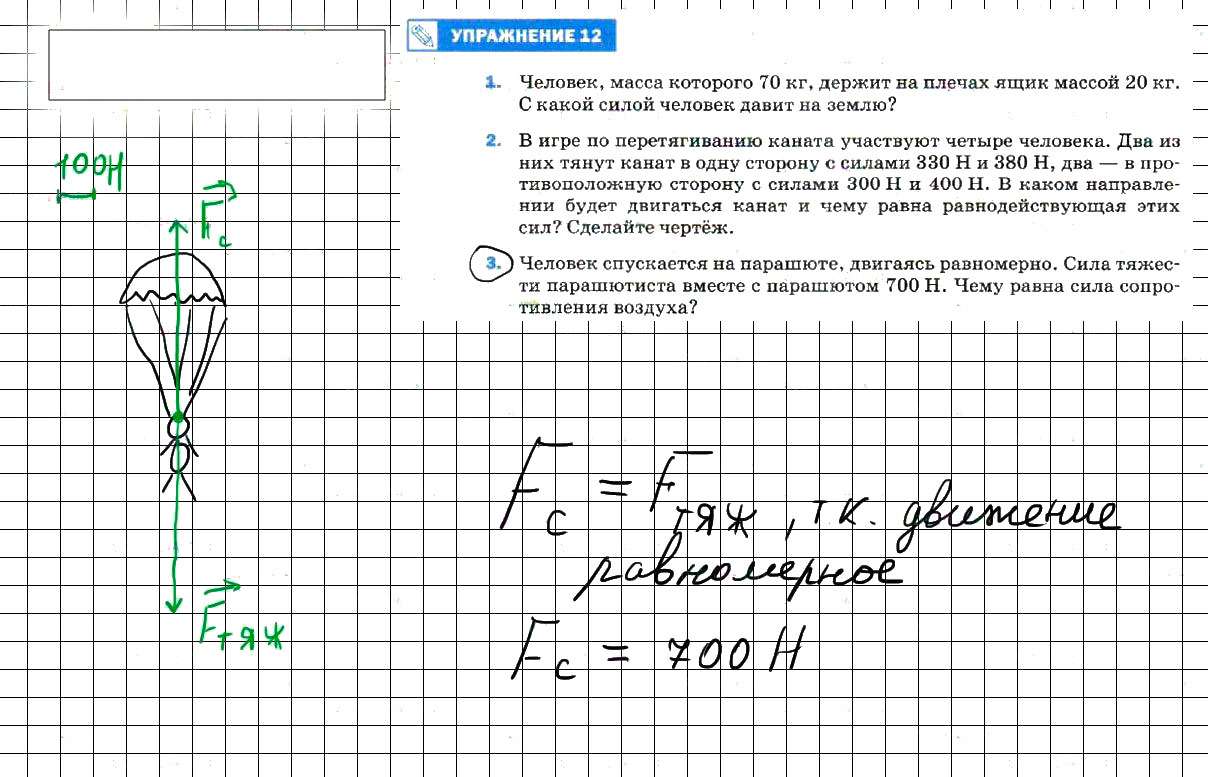 УПРАЖНЕНИЕ 12
1. Человек, масса которого 70 кг, держит на плечах ящик массой 20 кг.
С какой силой человек давит на землю?
2. В игре по перетягиванию каната участвуют четыре человека. Два из
них тянут канат в одну сторону с силами 330 Н и 380 Н, два — в про-
тивоположную сторону с силами 300 Н и 400 Н. В каком направле-
нии будет двигаться канат и чему равна равнодействующая этих
сил? Сделайте чертёж.
3. Человек спускается на парашюте, двигаясь равномерно. Сила тяжес-
ти парашютиста вместе с парашютом 700 Н. Чему равна сила сопро-
тивления воздуха?
100Н
Fс
Fтяж
Fс = Fтяж, т.к. движение
равномерное
Fс = 700 Н